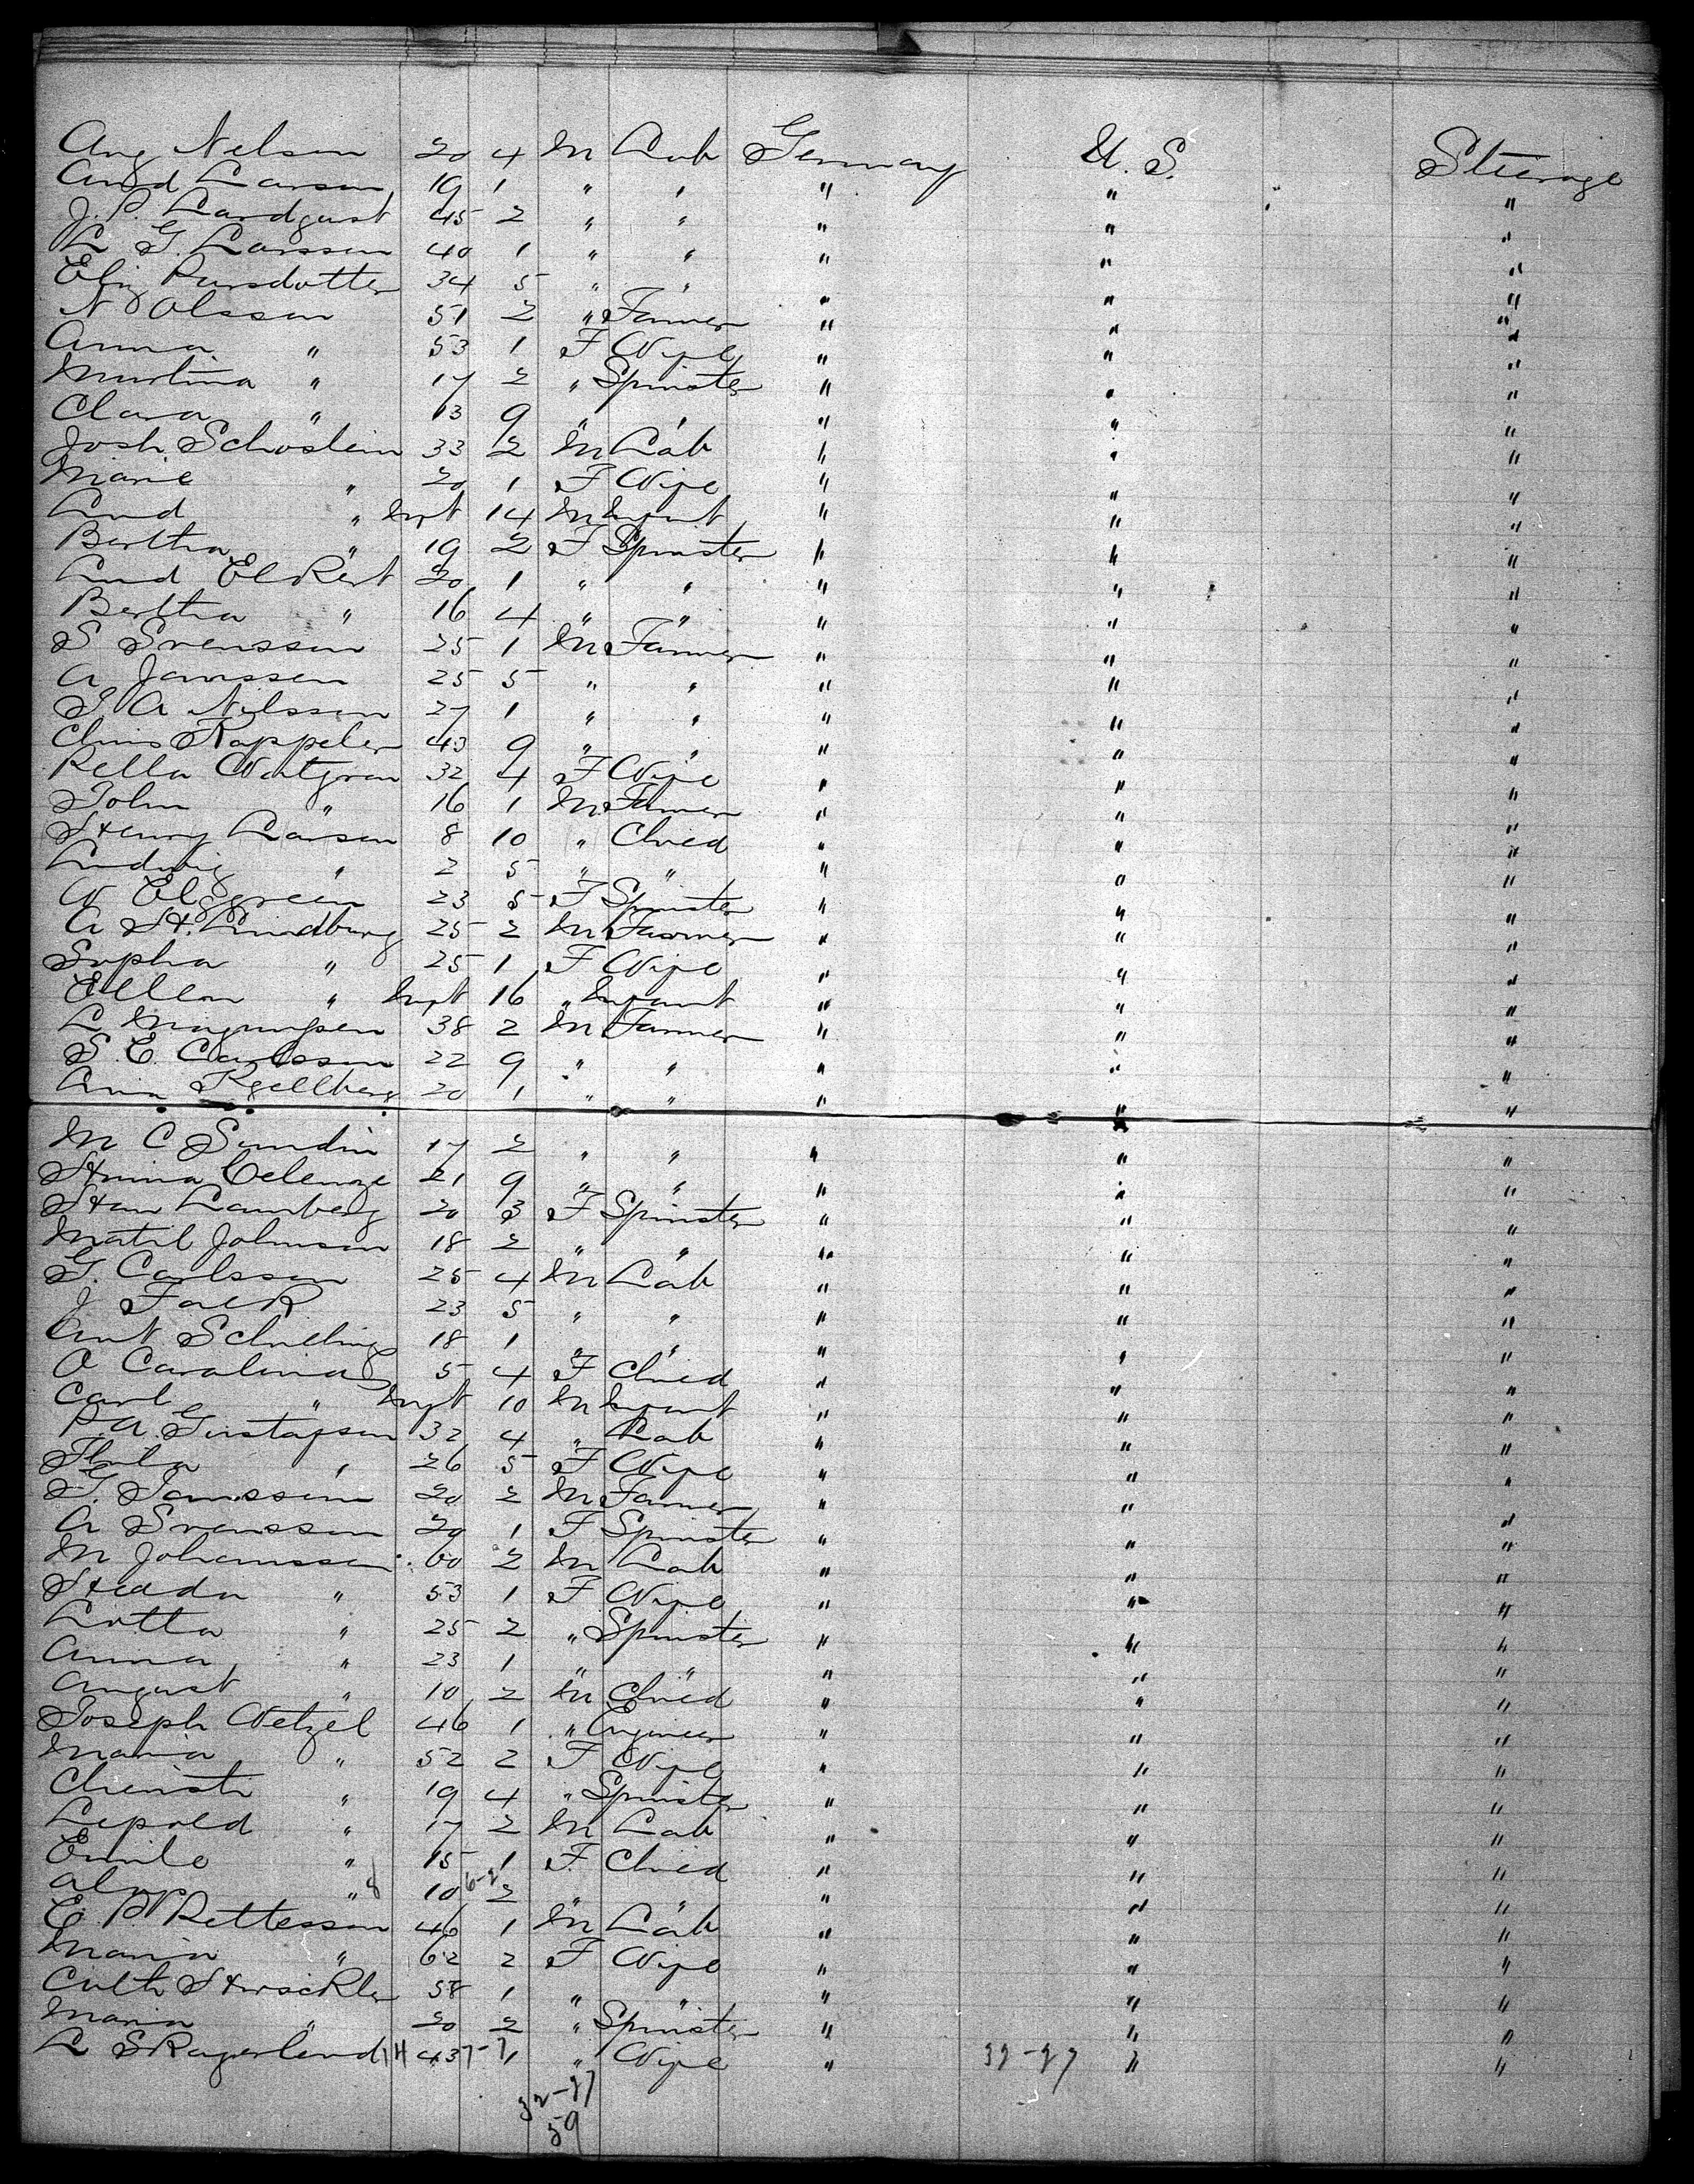 Aug Nelson 20 4 M Lab Germany U. S. Steerage
Larson 19 1 " " " " "
J. P. Landquist 45 2 " " " " "
L G. Larsson 40 1 " " " " "
Persdotter 34 5 " " " " "
N Olsson 51 2 " Farmer " " "
Anna " 53 1 F Wife " " "
Martina " 17 2 " Spinster " " "
Clara " 13 9 " " " " "
Josh. Schoslein 33 2 M Lab " " "
Marie " 20 1 F Wife " " "
Lud " Inft 14 M Infant " " "
Bertha " 19 2 F Spinster " " "
Lud Elkert 20 1 " " " " "
Bertha " 16 4 " " " " "
S Svensson 25 1 M Farmer " " "
A Janssen 25 5 " " " " "
A Nilsson 27 1 " " " " "
Chris Kappeler 43 9 " " " " "
Rella 32 4 F Wife " " "
John " 16 1 M Farmer " " "
Henry Larsen 8 10 " Chied " " "
Ludwig " 2 5 " " " " "
Elggreen 23 5 F Spinster " " "
A H. Lindburg 25 2 M Farmer " " "
Sopha " 25 1 F Wife " " "
Ellen " Inft 16 " Infant " " "
L Magnusen 38 2 M Farmer " " "
S. E. Carlsson 22 9 " " " " "
Kjellberg 20 1 " " " " "
M C Sundin 17 2 " " " " "
21 9 " " " " "
Lamberg 20 3 F Spinster " " "
Matil Johnson 18 2 " " " " "
G. Carlsson 25 4 M Lab " " "
J Falk 23 5 " " " " "
Ant Schilling 18 1 " " " " "
O Carolina 5 4 F Chied " " "
Carl " Inft 10 M Infant " " "
P. A. Gustafsen 32 4 " Lab " " "
" 26 5 F Wife " " "
20 2 M Farmer " " "
A Svensson 29 1 F Spinster " " "
M Johanssen 60 2 M Lab " " "
Hedda " 53 1 F Wife " " "
Lotta " 25 2 " Spinster " " "
Anna " 23 1 " " " " "
August " 10 2 M Chied " " "
Joseph Wetzel 46 1 " Engineer " " "
Maria " 52 2 F Wife " " "
Christi " 19 4 " Spinster " " "
Lepold " 17 2 M Lab " " "
Emile " 15 1 F. Chied " " "
" 10 2 " " " " "
E. P Pettersson 46 1 M Lab " " "
Maria " 62 2 F Wife " " "
58 1 " " " " "
Maria " 20 2 " Spinster " " "
L Skagerlund 43 1 " Wife " " "
59